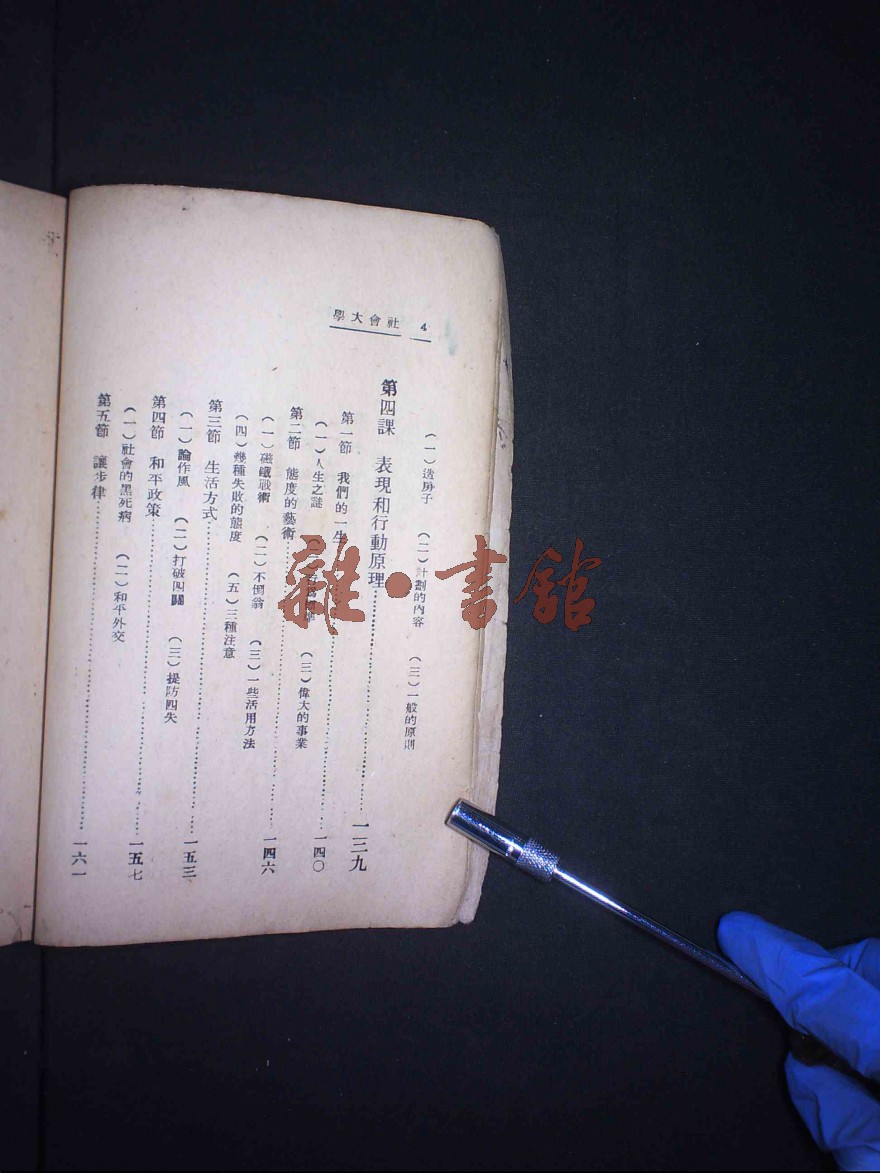 4 社會大學
（一）造房子 （二）計劃的內容 （三）一般的原則
第四課 表現和行動原理 一三九
第一節 我們的一生 一四〇
（一）人生之謎 （三）偉大的事業
第二節 態度的藝術 一四六
（一）磁鐵戰術 （二）不倒翁 （三）一些活用方法
（四）幾種失敗的態度 （五）三種注意
第三節 生活方式 一五三
（一）論作風 （二）打破四關 （三）提防四失
第四節 和平政策 一五七
（一）社會的黑死病 （二）和平外交
第五節 讓步律 一六一
雜·書館